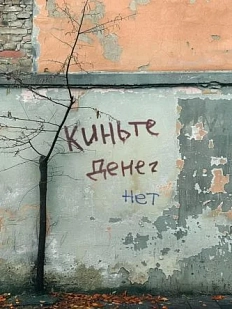 Киньте
денег
нет